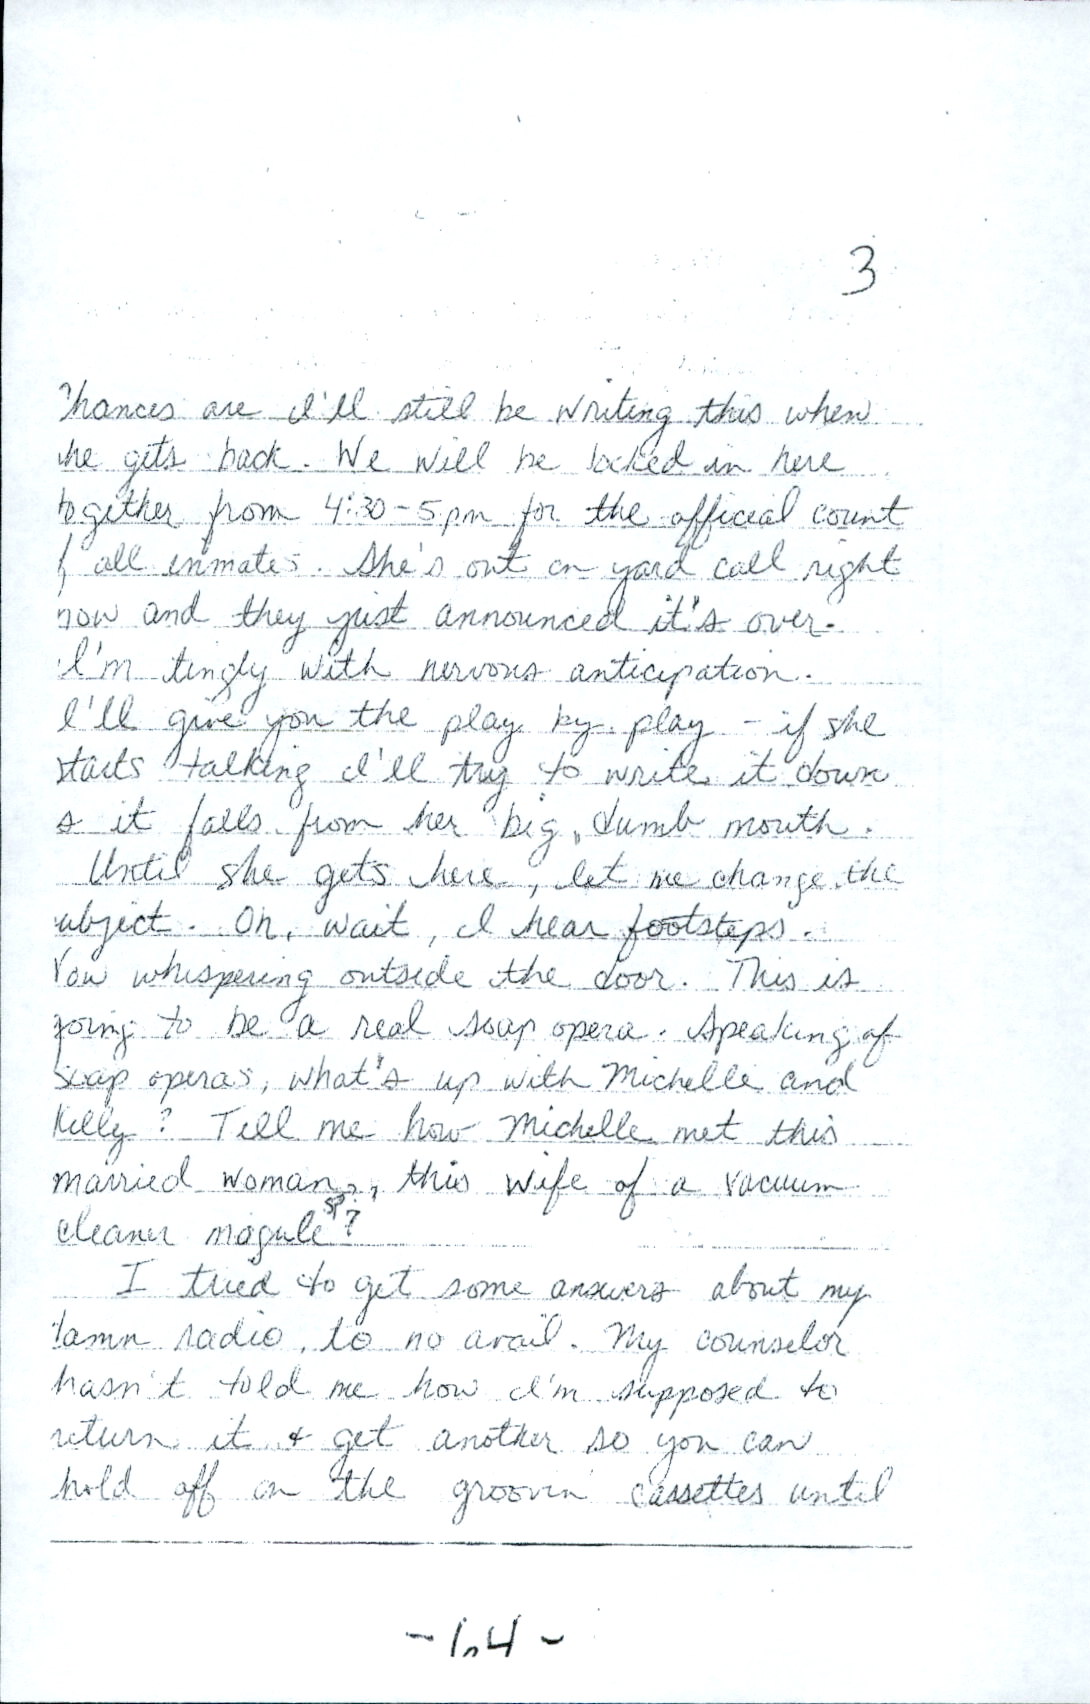 3
Chances are I'll still be writing this when
she gets back. We will be locked in here
together from 4:30-5pm for the official count
of all inmates. She's out on yard call right
now and they just announced it's over.
I'm tingly with nervous anticipation.
I'll give you the play by play - if she
starts talking I'll try to write it down
as it falls from her big, dumb mouth.
Until she gets here, let me change the
subject. Oh, wait, I hear footsteps.
Now whispering outside the door. This is
going to be a real soap opera. Speaking of
soap operas, what's up with Michelle and
Kelly? Tell me how Michelle met this
married woman, this wife of a vacuum
cleaner mogule sp?
I tried to get some answers about my
damn radio, to no avail. My counselor
hasn't told me how I'm supposed to
return it & get another so you can
hold off on the groovin' cassettes until